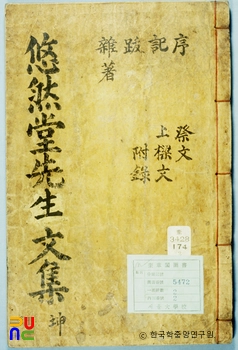 悠然堂先生文集 坤
序
記
跋
雜著
祭文
上樑文
附錄
174
5472
한국학중앙연구원